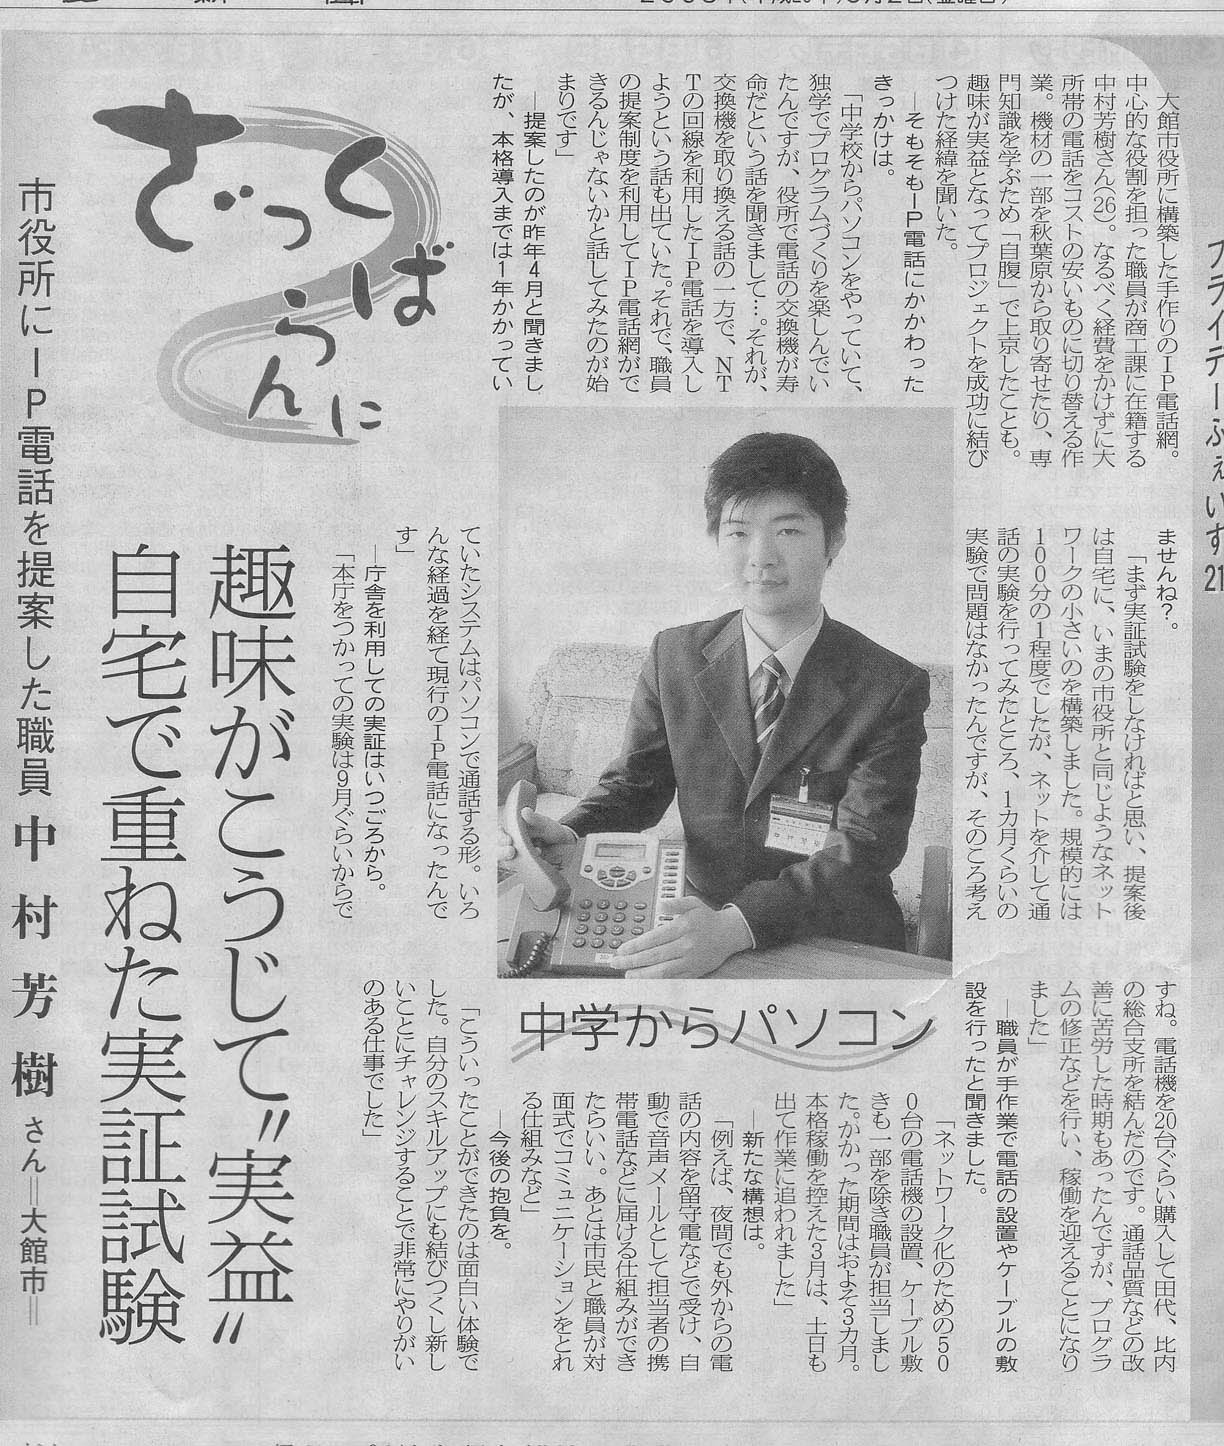 ざっくばらんに
市役所にＩＰ電話を提案した職員
中村芳樹さん＝大館市＝
趣味がこうじて〝実益〟
自宅で重ねた実証試験
大館市役所に構築した手作りのＩＰ電話網。
中心的な役割を担った職員が商工課に在籍する
中村芳樹さん(26)。なるべく経費をかけずに大
所帯の電話をコストの安いものに切り替える作
業。機材の一部を秋葉原から取り寄せたり、専
門知識を学ぶため「自腹」で上京したことも。
趣味が実益となってプロジェクトを成功に結び
つけた経緯を聞いた。
―そもそもＩＰ電話にかかわった
きっかけは。
「中学校からパソコンをやっていて、
独学でプログラムづくりを楽しんでい
たんですが、役所で電話の交換機が寿
命だという話を聞きまして…。それが、
交換機を取り換える話の一方で、ＮＴ
Ｔの回線を利用したＩＰ電話を導入し
ようという話も出ていた。それで、職員
の提案制度を利用してＩＰ電話網がで
きるんじゃないかと話してみたのが始
まりです」
―提案したのが昨年４月と聞きまし
たが、本格導入までは１年かかってい
ませんね？。
「まず実証試験をしなければと思い、提案後
は自宅に、いまの市役所と同じようなネット
ワークの小さいのを構築しました。規模的には
１００分の１程度でしたが、ネットを介して通
話の実験を行ってみたところ、１カ月くらいの
実験で問題はなかったんですが、そのころ考え
ていたシステムはパソコンで通話する形。いろ
んな経過を経て現行のＩＰ電話になったんで
す」
―庁舎を利用しての実証はいつごろから。
「本庁をつかっての実験は９月ぐらいからで
すね。電話機を20台ぐらい購入して田代、比内
の総合支所を結んだのです。通話品質などの改
善に苦労した時期もあったんですが、プログラ
ムの修正などを行い、稼働を迎えることになり
ました」
―職員が手作業で電話の設置やケーブルの敷
設を行ったと聞きました。
中学からパソコン
「ネットワーク化のための５０
０台の電話機の設置、ケーブル敷
きも一部を除き職員が担当しまし
た。かかった期間はおよそ３カ月。
本格稼働を控えた３月は、土日も
出て作業に追われました」
―新たな構想は。
「例えば、夜間でも外からの電
話の内容を留守電などで受け、自
動で音声メールとして担当者の携
帯電話などに届ける仕組みができ
たらいい。あとは市民と職員が対
面式でコミュニケーションをとれ
る仕組みなど」
―今後の抱負を。
「こういったことができたのは面白い体験で
した。自分のスキルアップにも結びつくし新し
いことにチャレンジすることで非常にやりがい
のある仕事でした」